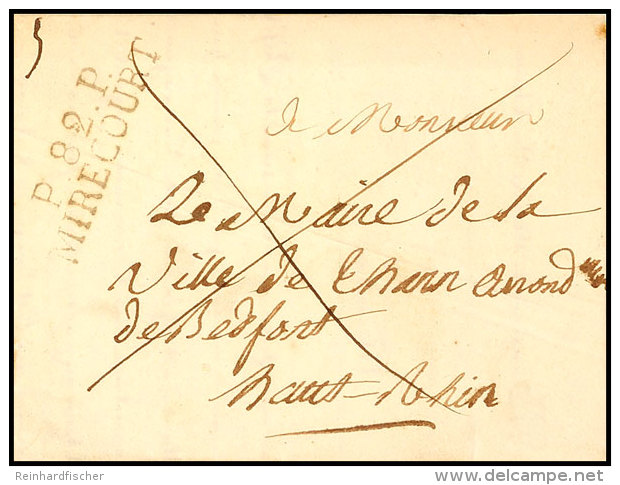 P. 82. P.
MIRECOURT
Monsieur
Le Maire de la
Ville de Thann
de Bedfort
haut-Rhin
Reinhardfischer
delcampe.net